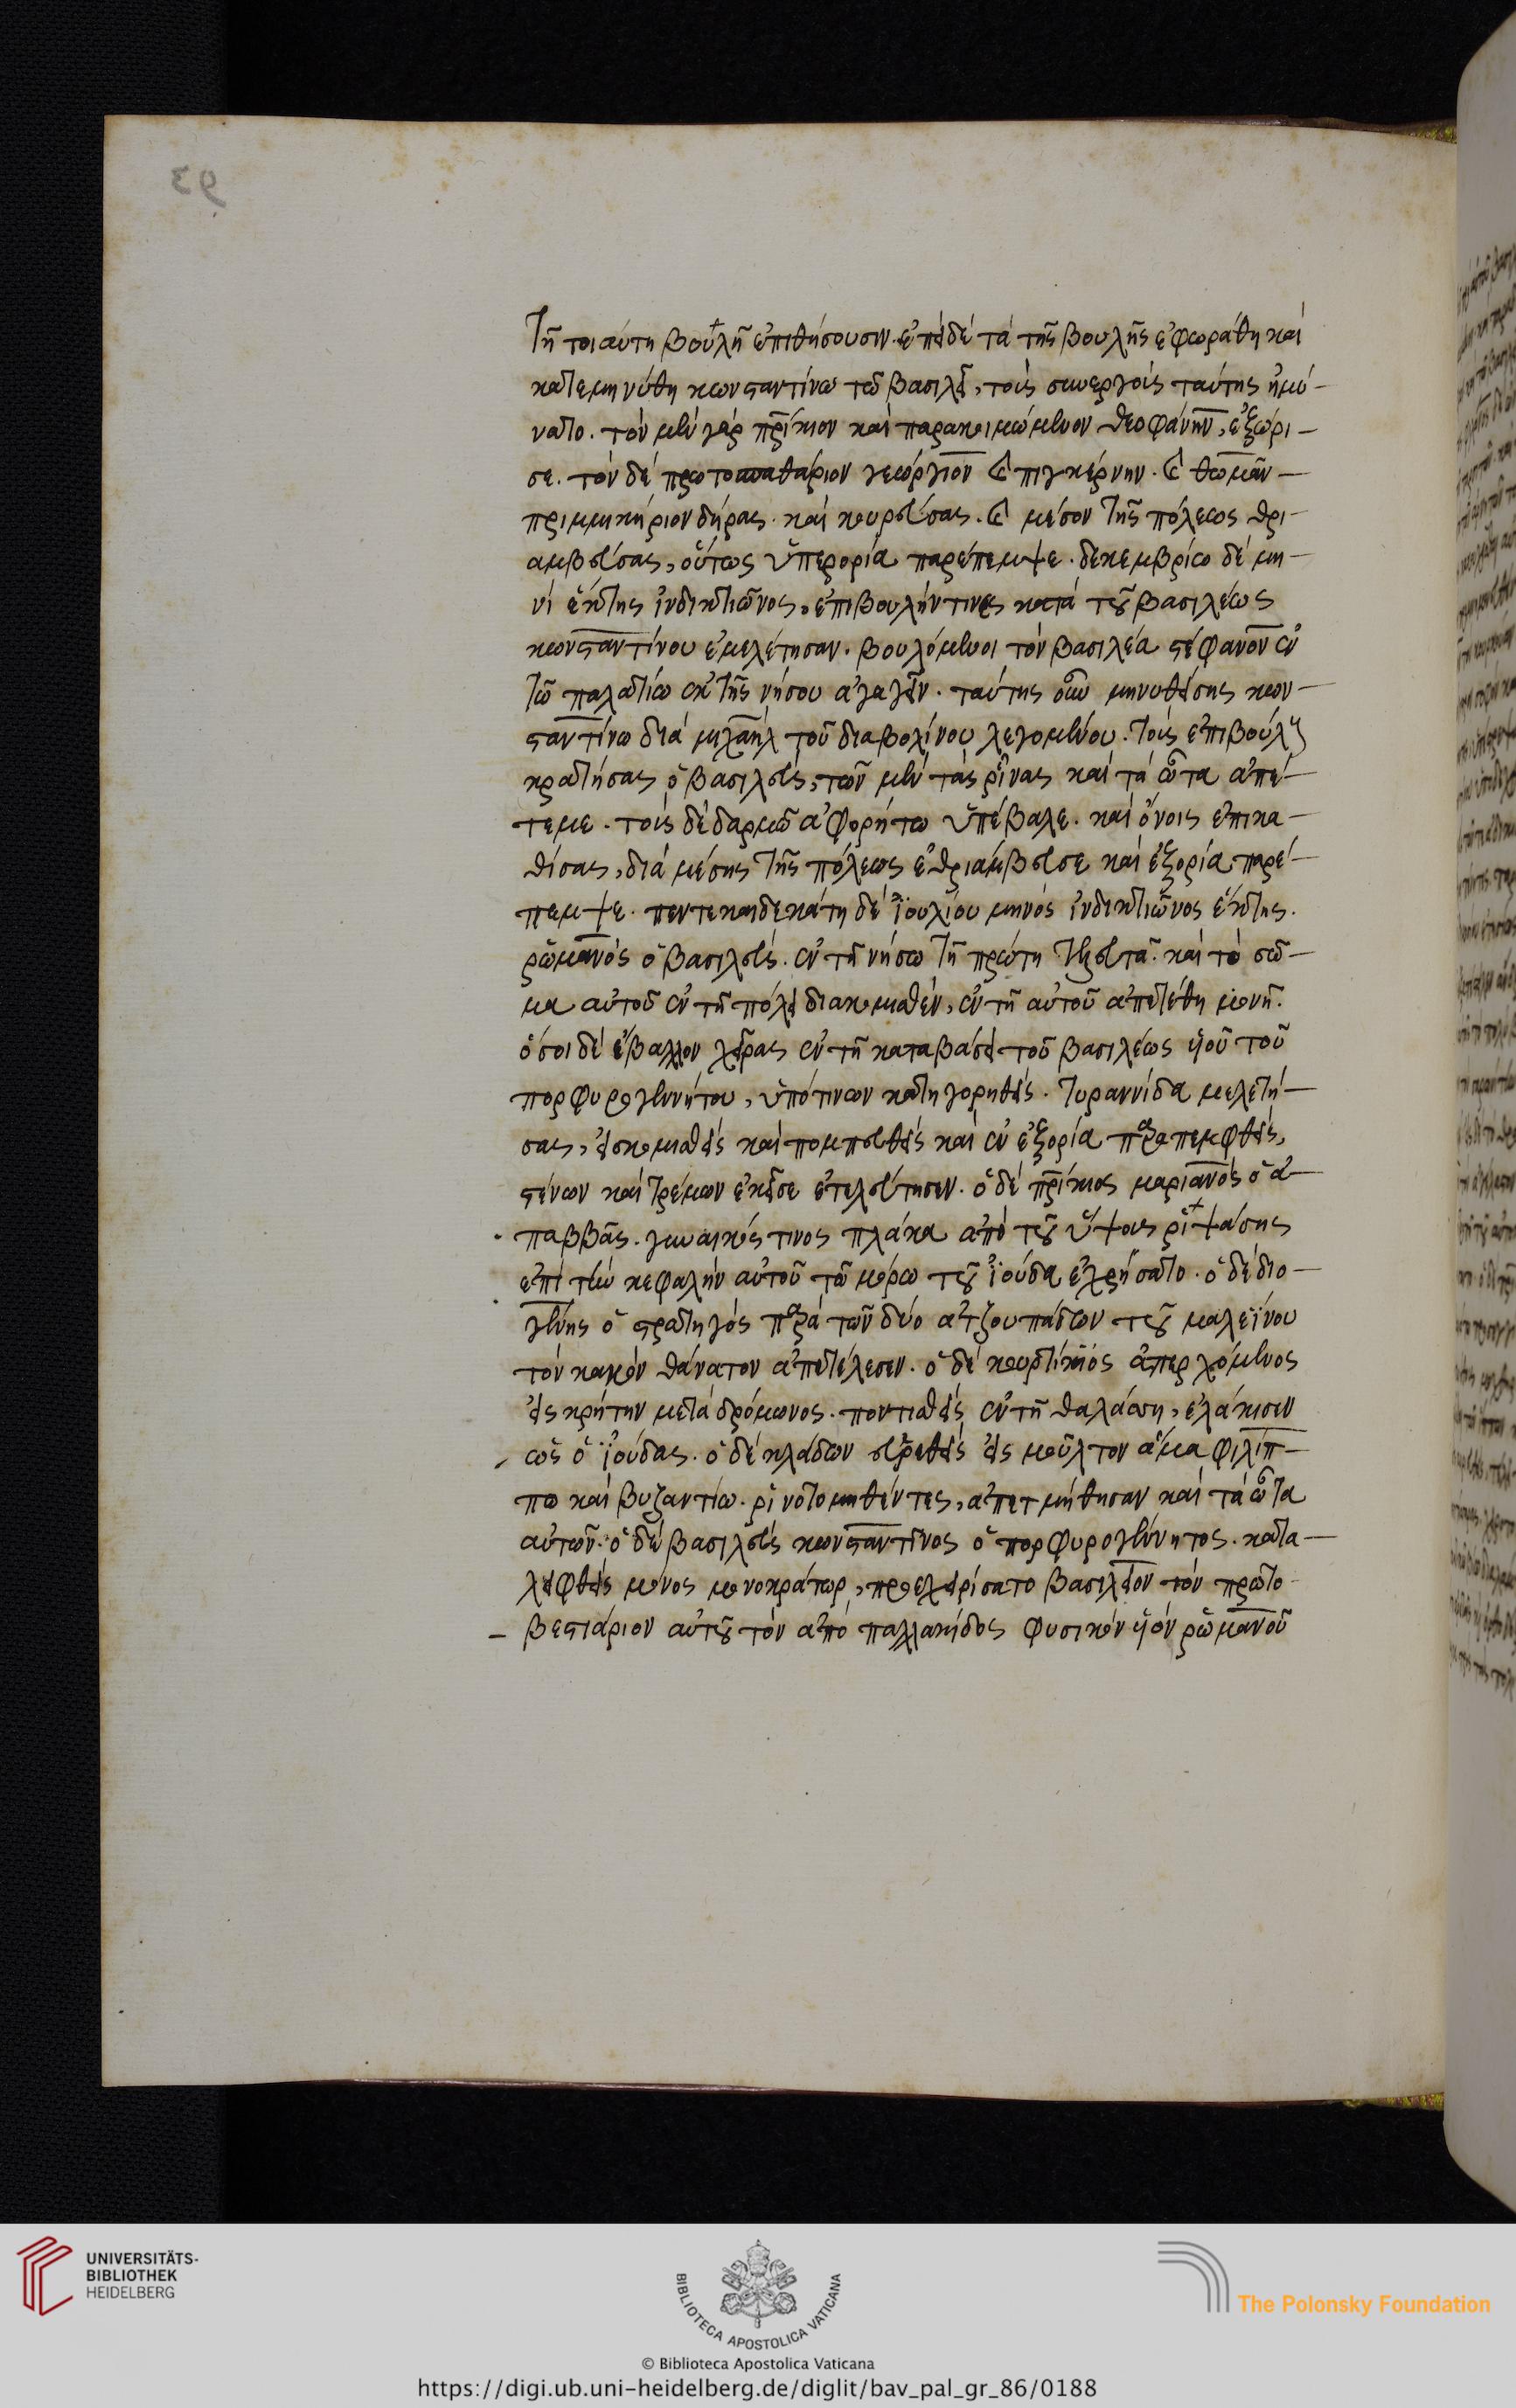 93
Τῆ τοιαύτη βουλῆ ἐπιθήσουσιν. ἐπεὶ δὲ τὰ τῆς βουλῆς ἐφωράθη καὶ
κατεμηνύθη κωνσταντίνω τῶ βασιλεῖ, τοὺς συνεργοὺς ταύτης ἠμύ-
νατο. τὸν μὲν γὰρ πρίκιον καὶ παρακοιμώμενον θεοφάνην, ἐξώρι-
σε. τὸν δὲ πρωτοσπαθάριον γεώργιον καὶ πιγκέρνην. καὶ θωμᾶν
πριμμικήριον δήρας. καὶ κουρεύσας. καὶ μέσον τῆς πόλεως θρι-
αμβεύσας, οὕτως ὑπερορία παρέπεμψε. δεκεμβρίω δὲ μη-
νὶ ἕκτης ἰνδικτιῶνος, ἐπιβουλήν τινες κατὰ τοῦ βασιλέως
κωνσταντίνου ἐμελέτησαν. βουλόμενοι τὸν βασιλέα στέφανον ἐν
τῶ παλατίω ἐκ τῆς νήσου ἀγαγεῖν. ταύτης οὖν μηνυθείσης κων-
σταντίνω διὰ μιχαὴλ τοῦ διαβολίνου λεγομένου. τοὺς ἐπιβούλους
κρατήσας ὁ βασιλεὺς, τῶν μὲν τὰς ῥῖνας καὶ τὰ ὦτα ἀπέ-
τεμε. τοὺς δὲ δαρμῶ ἀφορήτω ὑπέβαλε. καὶ ὄνοις ἐπικα-
θίσας, διὰ μέσης τῆς πόλεως ἐθριάμβευσε καὶ ἐξορία παρέ-
πεμψε. πεντεκαιδεκάτη δὲ ἰουλίου μηνὸς ἰνδικτιῶνος ἕκτης.
ῥωμανὸς ὁ βασιλεὺς. ἐν τῆ νήσω τῆ πρώτη τελευτᾶ. καὶ τὸ σῶ-
μα αὐτοῦ ἐν τῆ πόλει διακομισθὲν, ἐν τῆ αὐτοῦ ἀπετέθη μονῆ.
ὅσοι δὲ ἔβαλλον χεῖρας ἐν τῆ καταβάσει τοῦ βασιλέως υἱοῦ τοῦ
πορφυρογεννήτου, ὑπό τινων κατηγορηθεὶς. τυραννίδα μελετή-
σας, εἰσκομισθεὶς καὶ πομπευθεὶς καὶ ἐν ἐξορία παραπεμφθεὶς,
στένων καὶ τρέμων ἐκεῖσε ἐτελεύτησεν. ὁ δὲ πρίκιος μαριανὸς ὁ ἀ-
παββᾶς. γυναικός τινος πλάκα ἀπὸ τοῦ ὕψους ῥιψάσης
ἐπὶ τὴν κεφαλὴν αὐτοῦ τῶ μόρω τοῦ ἰούδα ἐχρήσατο. ὁ δὲ διο-
γένης ὁ στρατηγὸς παρὰ τῶν δύο ἀτζουπάδων τοῦ μαλεΐνου
τὸν κακὸν θάνατον ἀπετέλεσεν. ὁ δὲ κουρτίκιος ἀπερχόμενος
εἰς κρήτην μετὰ δρόμωνος. ποντισθεὶς ἐν τῆ θαλάσση, ἐλάκισεν
ὡς ὁ ἰούδας. ὁ δὲ κλάδων εὑρεθεὶς εἰς μοῦλτον ἅμα φιλίπ-
πω καὶ βυζαντίω. ῥινοτομηθέντες, ἀπετμήθησαν καὶ τὰ ὦτα
αὐτῶν. ὁ δὲ βασιλεὺς κωνσταντῖνος ὁ πορφυρογέννητος. κατα-
λειφθεὶς μόνος μονοκράτωρ, προεχειρίσατο βασίλειον τὸν πρωτο-
βεστιάριον αὐτοῦ τὸν ἀπὸ παλλακίδος φυσικὸν υἱὸν ῥωμανοῦ
UNIVERSITÄTS-
BIBLIOTHEK
HEIDELBERG
BIBLIOTECA APOSTOLICA VATICANA
The Polonsky Foundation
© Biblioteca Apostolica Vaticana
https://digi.ub.uni-heidelberg.de/diglit/bav_pal_gr_86/0188